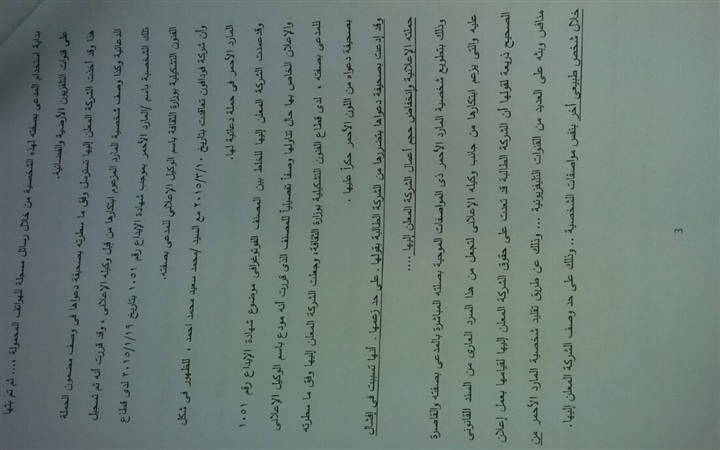 بداية استخدام المدعى بصفته لهذه الشخصية من خلال رسائل مسجلة للهواتف المحمولة .... ثم تم بثها
على قنوات التلفزيون الأرضية والفضائية.
هذا وقد أخذت الشركة المعلن إليها تسترسل وفق ما سطرته بصحيفة دعواها فى وصف مضمون الحملة
الدعائية وكذا وصف شخصية المارد المزعوم ابتكارها من قبل وكيله الإعلانى ، وقد قررت أنه تم تسجيل
تلك الشخصية باسم /المارد الأحمر بموجب شهادة الإيداع رقم ١٠٥١ بتاريخ ٢٠١٥/١/١٩ لدى قطاع
الفنون التشكيلية بوزارة الثقافة باسم الوكيل الإعلاني للمدعى بصفته.
وأن شركة فودافون تعاقدت بتاريخ ٢٠١٥/٣/١٠ مع السيد /محمد سعيد محمد احمد . للظهور فى شكل
المارد الأحمر فى حملة دعائية لها.
وقد عمدت الشركة المعلن إليها للخلط بين المصنف الفوتوغرافى موضوع شهادة الإيداع رقم ١٠٥١
والإعلان الخاص بها حال تناولها وصفاً تفصيلياً للمصنف الذى قررت أنه مودع باسم الوكيل الإعلانى
للمدعى بصفته ، لدى قطاع الفنون التشكيلية بوزارة الثقافة، وجعلت الشركة المعلن إليها وفق ما سطرته
بصحيفة دعواه من اللون الأحمر حكراً عليها .
وقد إدعت بصحيفة دعواها بتضررها من الشركة الطالبة بقولها ـ على حد زعمها ـ أنها تسببت فى إفشال
حملته الإعلانية وانخفاض حجم أعمال الشركة المعلن إليها ....
وذلك بتطويع شخصية المارد الأحمر ذى المواصفات الموحية بصلته المباشرة بالمدعى بصفته والقاصرة
عليه والتى يزعم ابتكارها من جانب وكيله الإعلانى لتجعل من هذا السرد العارى من السند القانونى
الصحيح ذريعة لقولها أن الشركة الطالبة قد تعدت على حقوق الشركة المعلن إليها لقيامها بعمل إعلان
منافس وبثه على العديد من القنوات التليفزيونية ... وذلك عن طريق تقليد شخصية المارد الأحمر من
خلال شخص طبيعى أخر بنفس مواصفات الشخصية .. وذلك على حد وصف الشركة المعلن إليها.
3